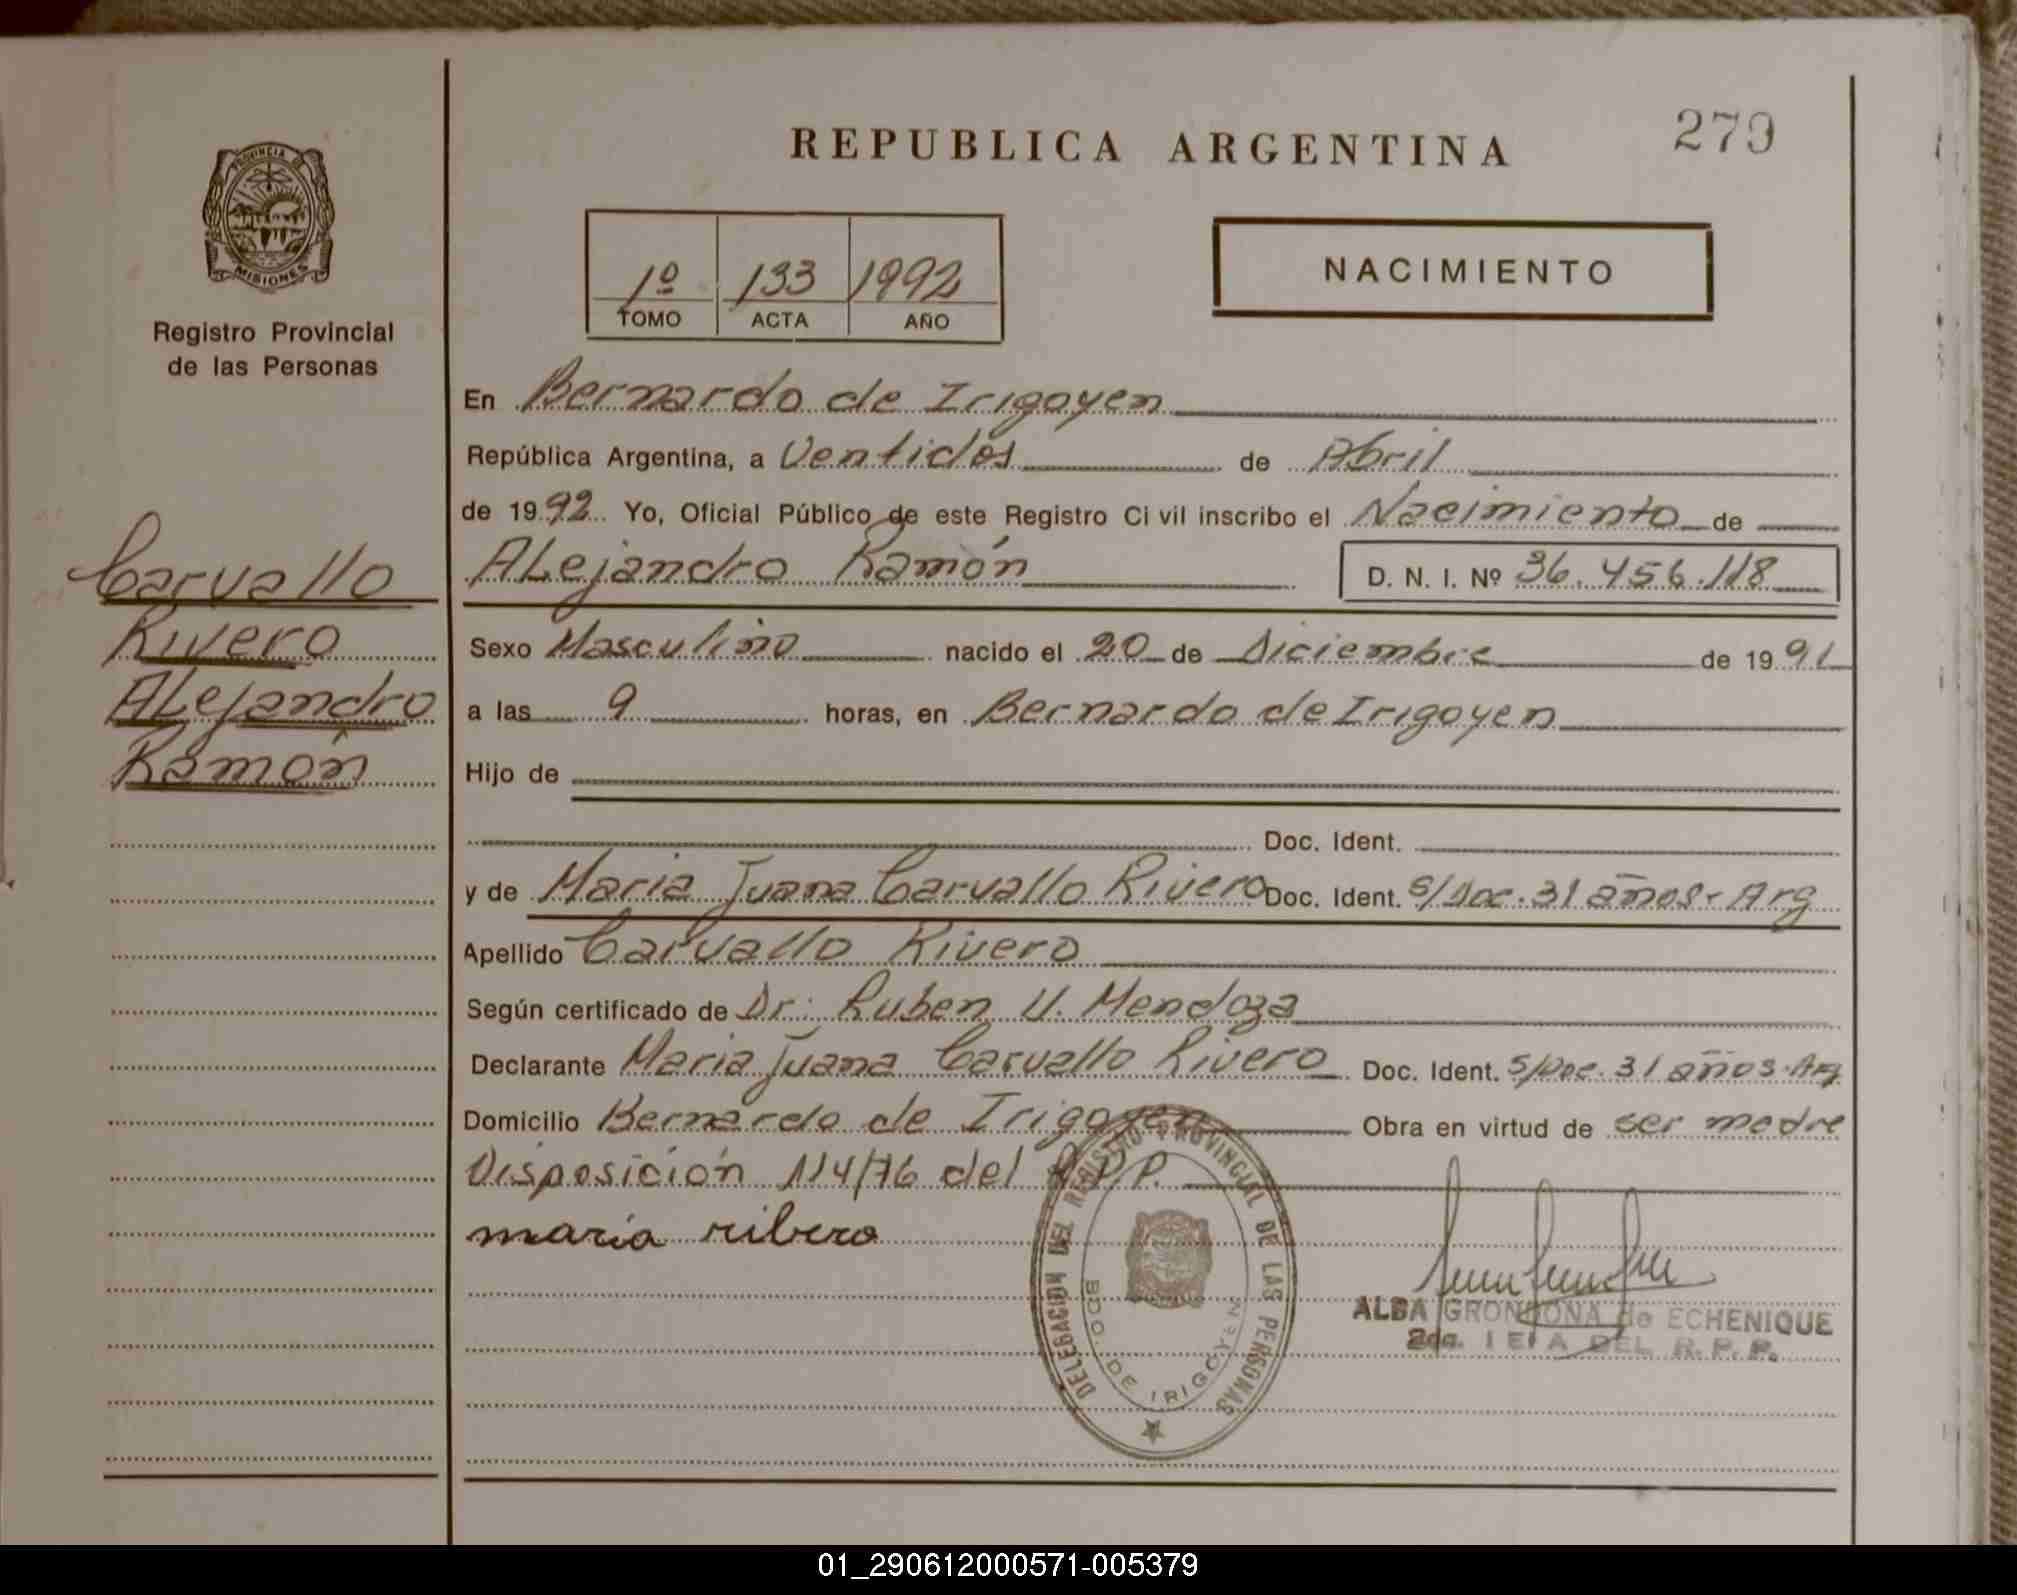 REPUBLICA ARGENTINA
279
PROVINCIA DE
MISIONES
Registro Provincial
de las Personas
1º 133 1992
TOMO ACTA AÑO
NACIMIENTO
En Bernardo de Irigoyen
República Argentina, a Ventidós de Abril
de 1992 Yo, Oficial Público de este Registro Civil inscribo el Nacimiento de
Alejandro Ramón D. N. I. Nº 36.456.118
Carvallo
Rivero
Alejandro
Ramón
Sexo Masculino nacido el 20 de Diciembre de 1991
a las 9 horas, en Bernardo de Irigoyen
Hijo de
Doc. Ident.
y de Maria Juana Carvallo Rivero Doc. Ident. s/Doc. 31 años - Arg
Apellido Carvallo Rivero
Según certificado de Dr: Ruben U. Mendoza
Declarante Maria Juana Carvallo Rivero Doc. Ident. s/Doc. 31 años. Arg
Domicilio Bernardo de Irigoyen Obra en virtud de ser madre
Disposición 114/76 del R.P.P.
maria ribero
DELEGACION DEL REGISTRO PROVINCIAL DE LAS PERSONAS
BDO. DE IRIGOYEN
ALBA GRONDONA de ECHENIQUE
2da. JEFA DEL R. P. P.
01_290612000571-005379